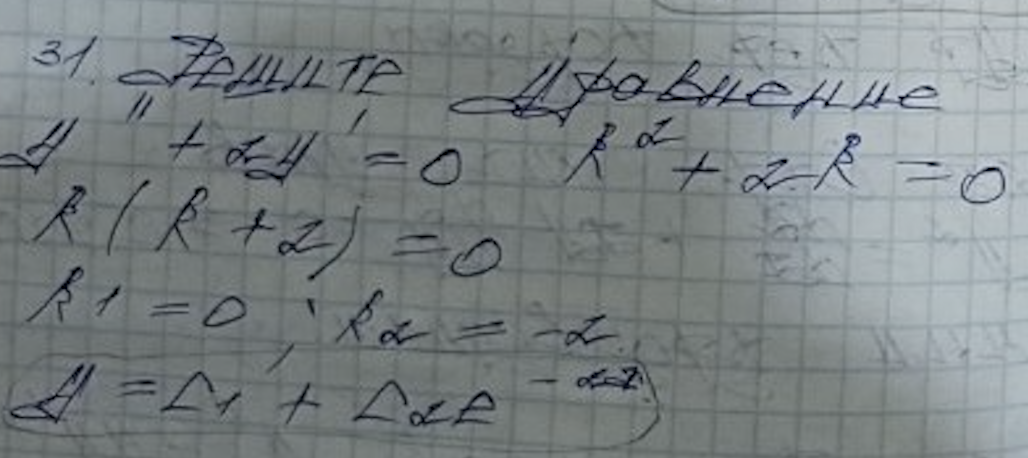 31. Решите уравнение
y'' + 2y' = 0 k² + 2k = 0
k(k + 2) = 0
k1 = 0; k2 = -2
y = C1 + C2e^-2x